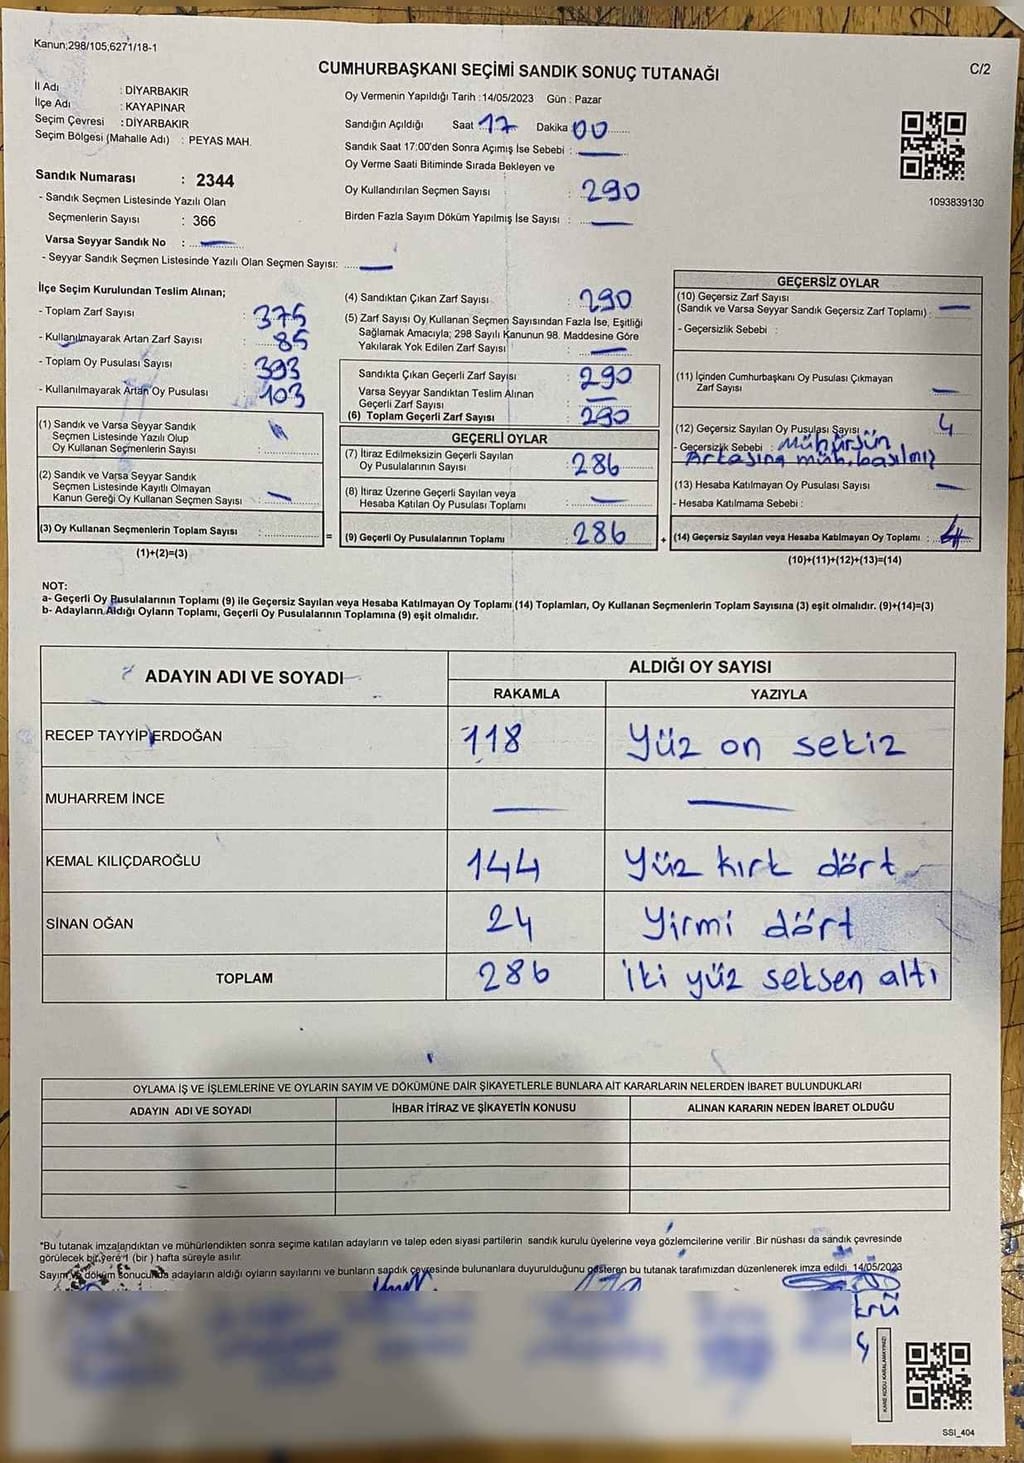 Kanun;298/105,6271/18-1
CUMHURBAŞKANI SEÇİMİ SANDIK SONUÇ TUTANAĞI
C/2
İl Adı : DİYARBAKIR
İlçe Adı : KAYAPINAR
Seçim Çevresi : DİYARBAKIR
Seçim Bölgesi (Mahalle Adı) : PEYAS MAH.
Sandık Numarası : 2344
- Sandık Seçmen Listesinde Yazılı Olan
Seçmenlerin Sayısı : 366
Varsa Seyyar Sandık No : —
- Seyyar Sandık Seçmen Listesinde Yazılı Olan Seçmen Sayısı: —
Oy Vermenin Yapıldığı Tarih : 14/05/2023 Gün : Pazar
Sandığın Açıldığı Saat 17 Dakika 00
Sandık Saat 17:00'den Sonra Açımış İse Sebebi : —
Oy Verme Saati Bitiminde Sırada Bekleyen ve
Oy Kullandırılan Seçmen Sayısı : 290
Birden Fazla Sayım Döküm Yapılmış İse Sayısı : —
1093839130
İlçe Seçim Kurulundan Teslim Alınan;
- Toplam Zarf Sayısı : 375
- Kullanılmayarak Artan Zarf Sayısı : 85
- Toplam Oy Pusulası Sayısı : 393
- Kullanılmayarak Artan Oy Pusulası : 103
(1) Sandık ve Varsa Seyyar Sandık
Seçmen Listesinde Yazılı Olup
Oy Kullanan Seçmenlerin Sayısı :
(2) Sandık ve Varsa Seyyar Sandık
Seçmen Listesinde Kayıtlı Olmayan
Kanun Gereği Oy Kullanan Seçmen Sayısı : —
(3) Oy Kullanan Seçmenlerin Toplam Sayısı :
(1)+(2)=(3)
=
(4) Sandıktan Çıkan Zarf Sayısı : 290
(5) Zarf Sayısı Oy Kullanan Seçmen Sayısından Fazla İse, Eşitliği
Sağlamak Amacıyla; 298 Sayılı Kanunun 98. Maddesine Göre
Yakılarak Yok Edilen Zarf Sayısı : —
Sandıkta Çıkan Geçerli Zarf Sayısı : 290
Varsa Seyyar Sandıktan Teslim Alınan
Geçerli Zarf Sayısı : —
(6) Toplam Geçerli Zarf Sayısı : 290
GEÇERLİ OYLAR
(7) İtiraz Edilmeksizin Geçerli Sayılan
Oy Pusulalarının Sayısı : 286
(8) İtiraz Üzerine Geçerli Sayılan veya
Hesaba Katılan Oy Pusulaları Toplamı : —
(9) Geçerli Oy Pusulalarının Toplamı : 286
+
GEÇERSİZ OYLAR
(10) Geçersiz Zarf Sayısı
(Sandık ve Varsa Seyyar Sandık Geçersiz Zarf Toplamı) : —
- Geçersizlik Sebebi :
(11) İçinden Cumhurbaşkanı Oy Pusulası Çıkmayan
Zarf Sayısı : —
(12) Geçersiz Sayılan Oy Pusulası Sayısı : 4
- Geçersizlik Sebebi : Mühürsün
Arkasına müh. basılmış
(13) Hesaba Katılmayan Oy Pusulası Sayısı : —
- Hesaba Katılmama Sebebi :
(14) Geçersiz Sayılan veya Hesaba Katılmayan Oy Toplamı : 4
(10)+(11)+(12)+(13)=(14)
NOT:
a- Geçerli Oy Pusulalarının Toplamı (9) ile Geçersiz Sayılan veya Hesaba Katılmayan Oy Toplamı (14) Toplamları, Oy Kullanan Seçmenlerin Toplam Sayısına (3) eşit olmalıdır. (9)+(14)=(3)
b- Adayların Aldığı Oyların Toplamı, Geçerli Oy Pusulalarının Toplamına (9) eşit olmalıdır.
ADAYIN ADI VE SOYADI
ALDIĞI OY SAYISI
RAKAMLA YAZIYLA
RECEP TAYYİP ERDOĞAN 118 Yüz on sekiz
MUHARREM İNCE — —
KEMAL KILIÇDAROĞLU 144 Yüz kırk dört
SİNAN OĞAN 24 Yirmi dört
TOPLAM 286 iki yüz seksen altı
OYLAMA İŞ VE İŞLEMLERİNE VE OYLARIN SAYIM VE DÖKÜMÜNE DAİR ŞİKAYETLERLE BUNLARA AİT KARARLARIN NELERDEN İBARET BULUNDUKLARI
ADAYIN ADI VE SOYADI İHBAR İTİRAZ VE ŞİKAYETİN KONUSU ALINAN KARARIN NEDEN İBARET OLDUĞU
*Bu tutanak imzalandıktan ve mühürlendikten sonra seçime katılan adayların ve talep eden siyasi partilerin sandık kurulu üyelerine veya gözlemcilerine verilir. Bir nüshası da sandık çevresinde
görülecek bir yere 1 (bir) hafta süreyle asılır.
Sayım ve döküm sonucunda adayların aldığı oyların sayılarını ve bunların sandık çevresinde bulunanlara duyurulduğunu gösteren bu tutanak tarafımızdan düzenlenerek imza edildi. 14/05/2023
krü
KARE KODU KARALAMAYINIZ!
SSI_404